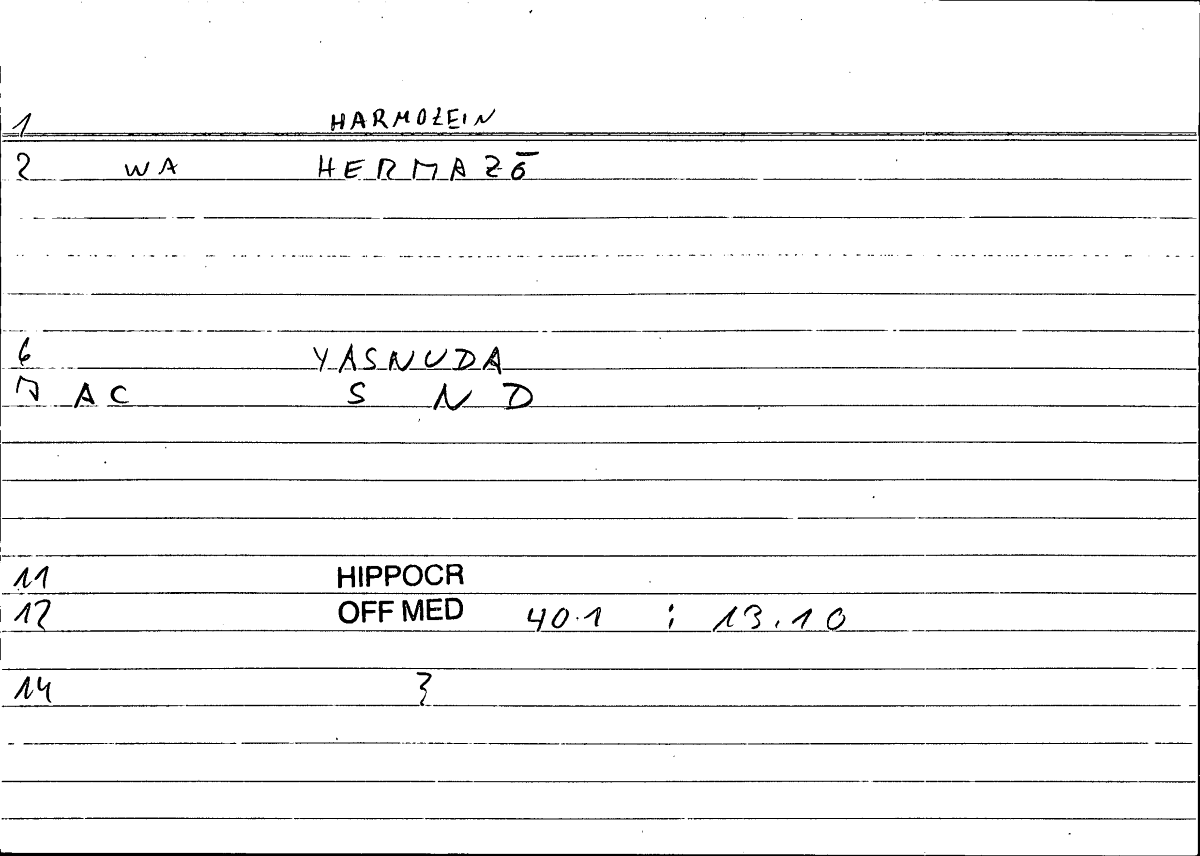 1 HARMOZEIN
2 WA HERMAZŌ
6 YASNUDA
7 AC S N D
11 HIPPOCR
12 OFF MED 40.1 : 13.10
14 3